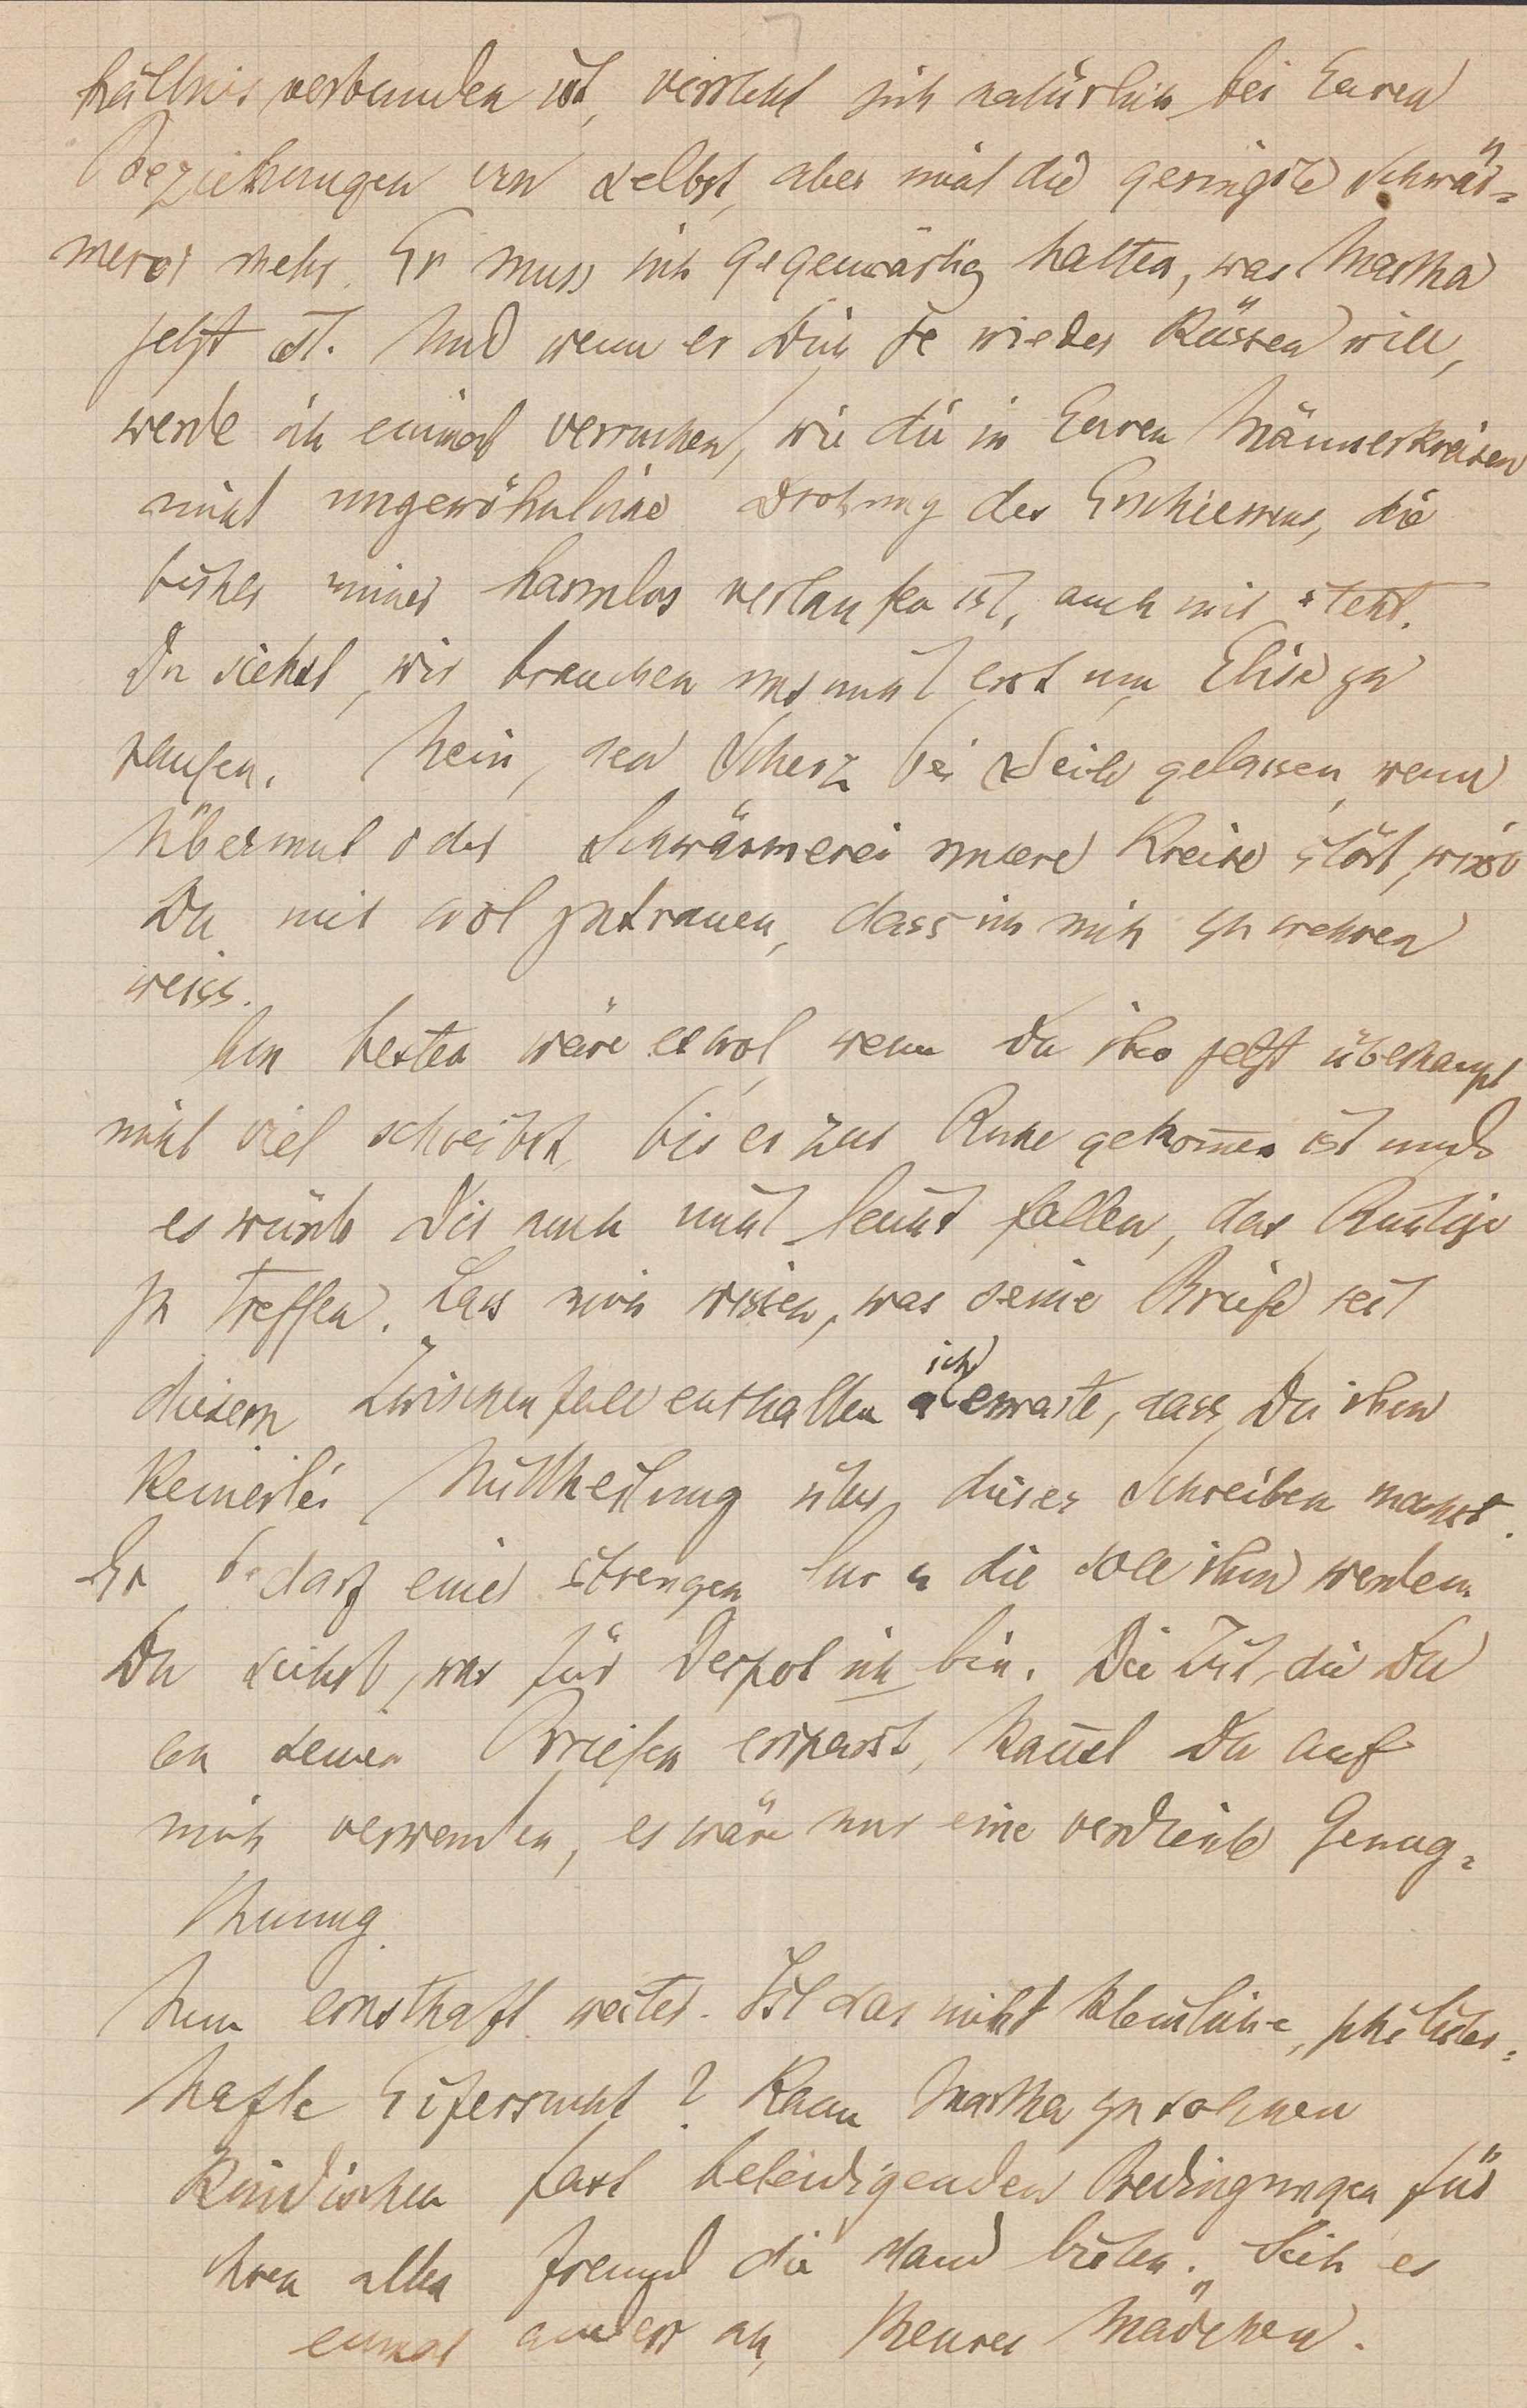 hältnis verbunden ist, versteht sich natürlich bei Euren
Beziehungen von selbst, aber nicht die geringste Schwär=
merei mehr. Er muss sich gegenwärtig halten, was Martha
jetzt ist. Und wenn er Dich je wieder küssen will,
werde ich einmal versuchen, wie die in Euren Männerkreisen
nicht ungewöhnliche Drohung des Erschiessens, die
bisher immer harmlos verlaufen ist, auch mir steht.
Du siehst, wir brauchen uns nicht erst um Elise zu
raufen. Nein, den Scherz bei Seite gelassen, wenn
Übermut oder Schwärmerei unsere Kreise stört, wirst
Du mir wol zutrauen, dass ich mich zu wehren
weiss.
Am besten wäre es wol, wenn Du ihm jetzt überhaupt
nicht viel schreibst, bis er zur Ruhe gekom̄en ist und
es würde Dir auch nicht leicht fallen, das Richtige
zu treffen. Lass mich wissen, was seine Briefe seit
diesem Zwischenfall enthalten ich erwarte, dass Du ihm
keinerlei Mittheilung über dieses Schreiben machst.
Er bedarf einer strengen Cur u die soll ihm werden.
Du siehst, was für Despot ich bin. Die Zeit, die Du
an seinen Briefen ersparst, kan̄st Du auf
mich verwenden, es wäre nur eine verdiente Genug=
thuung.
Nun ernsthaft weiter. Ist das nicht kleinliche, philister=
hafte Eifersucht? Kann Martha zu solchen
kindischen fast beleidigenden Bedingungen für
ihren alten Freund die Hand bieten. Sieh es
einmal anders an, theures Mädchen.